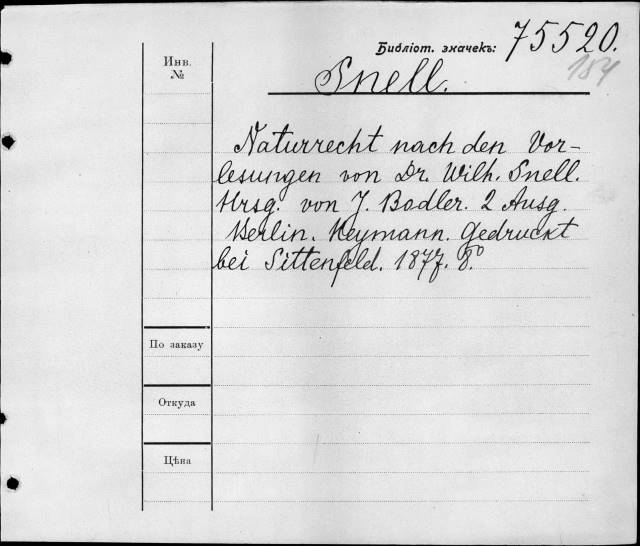 Библіот. значекъ: 75520.
184
Инв.
№
Snell.
Naturrecht nach den Vor-
lesungen von Dr. Wilh. Snell.
Hrsg. von J. Bodler. 2 Ausg.
Berlin. Heymann. Gedruckt
bei Sittenfeld. 1877. 8º
По заказу
Откуда
Цѣна